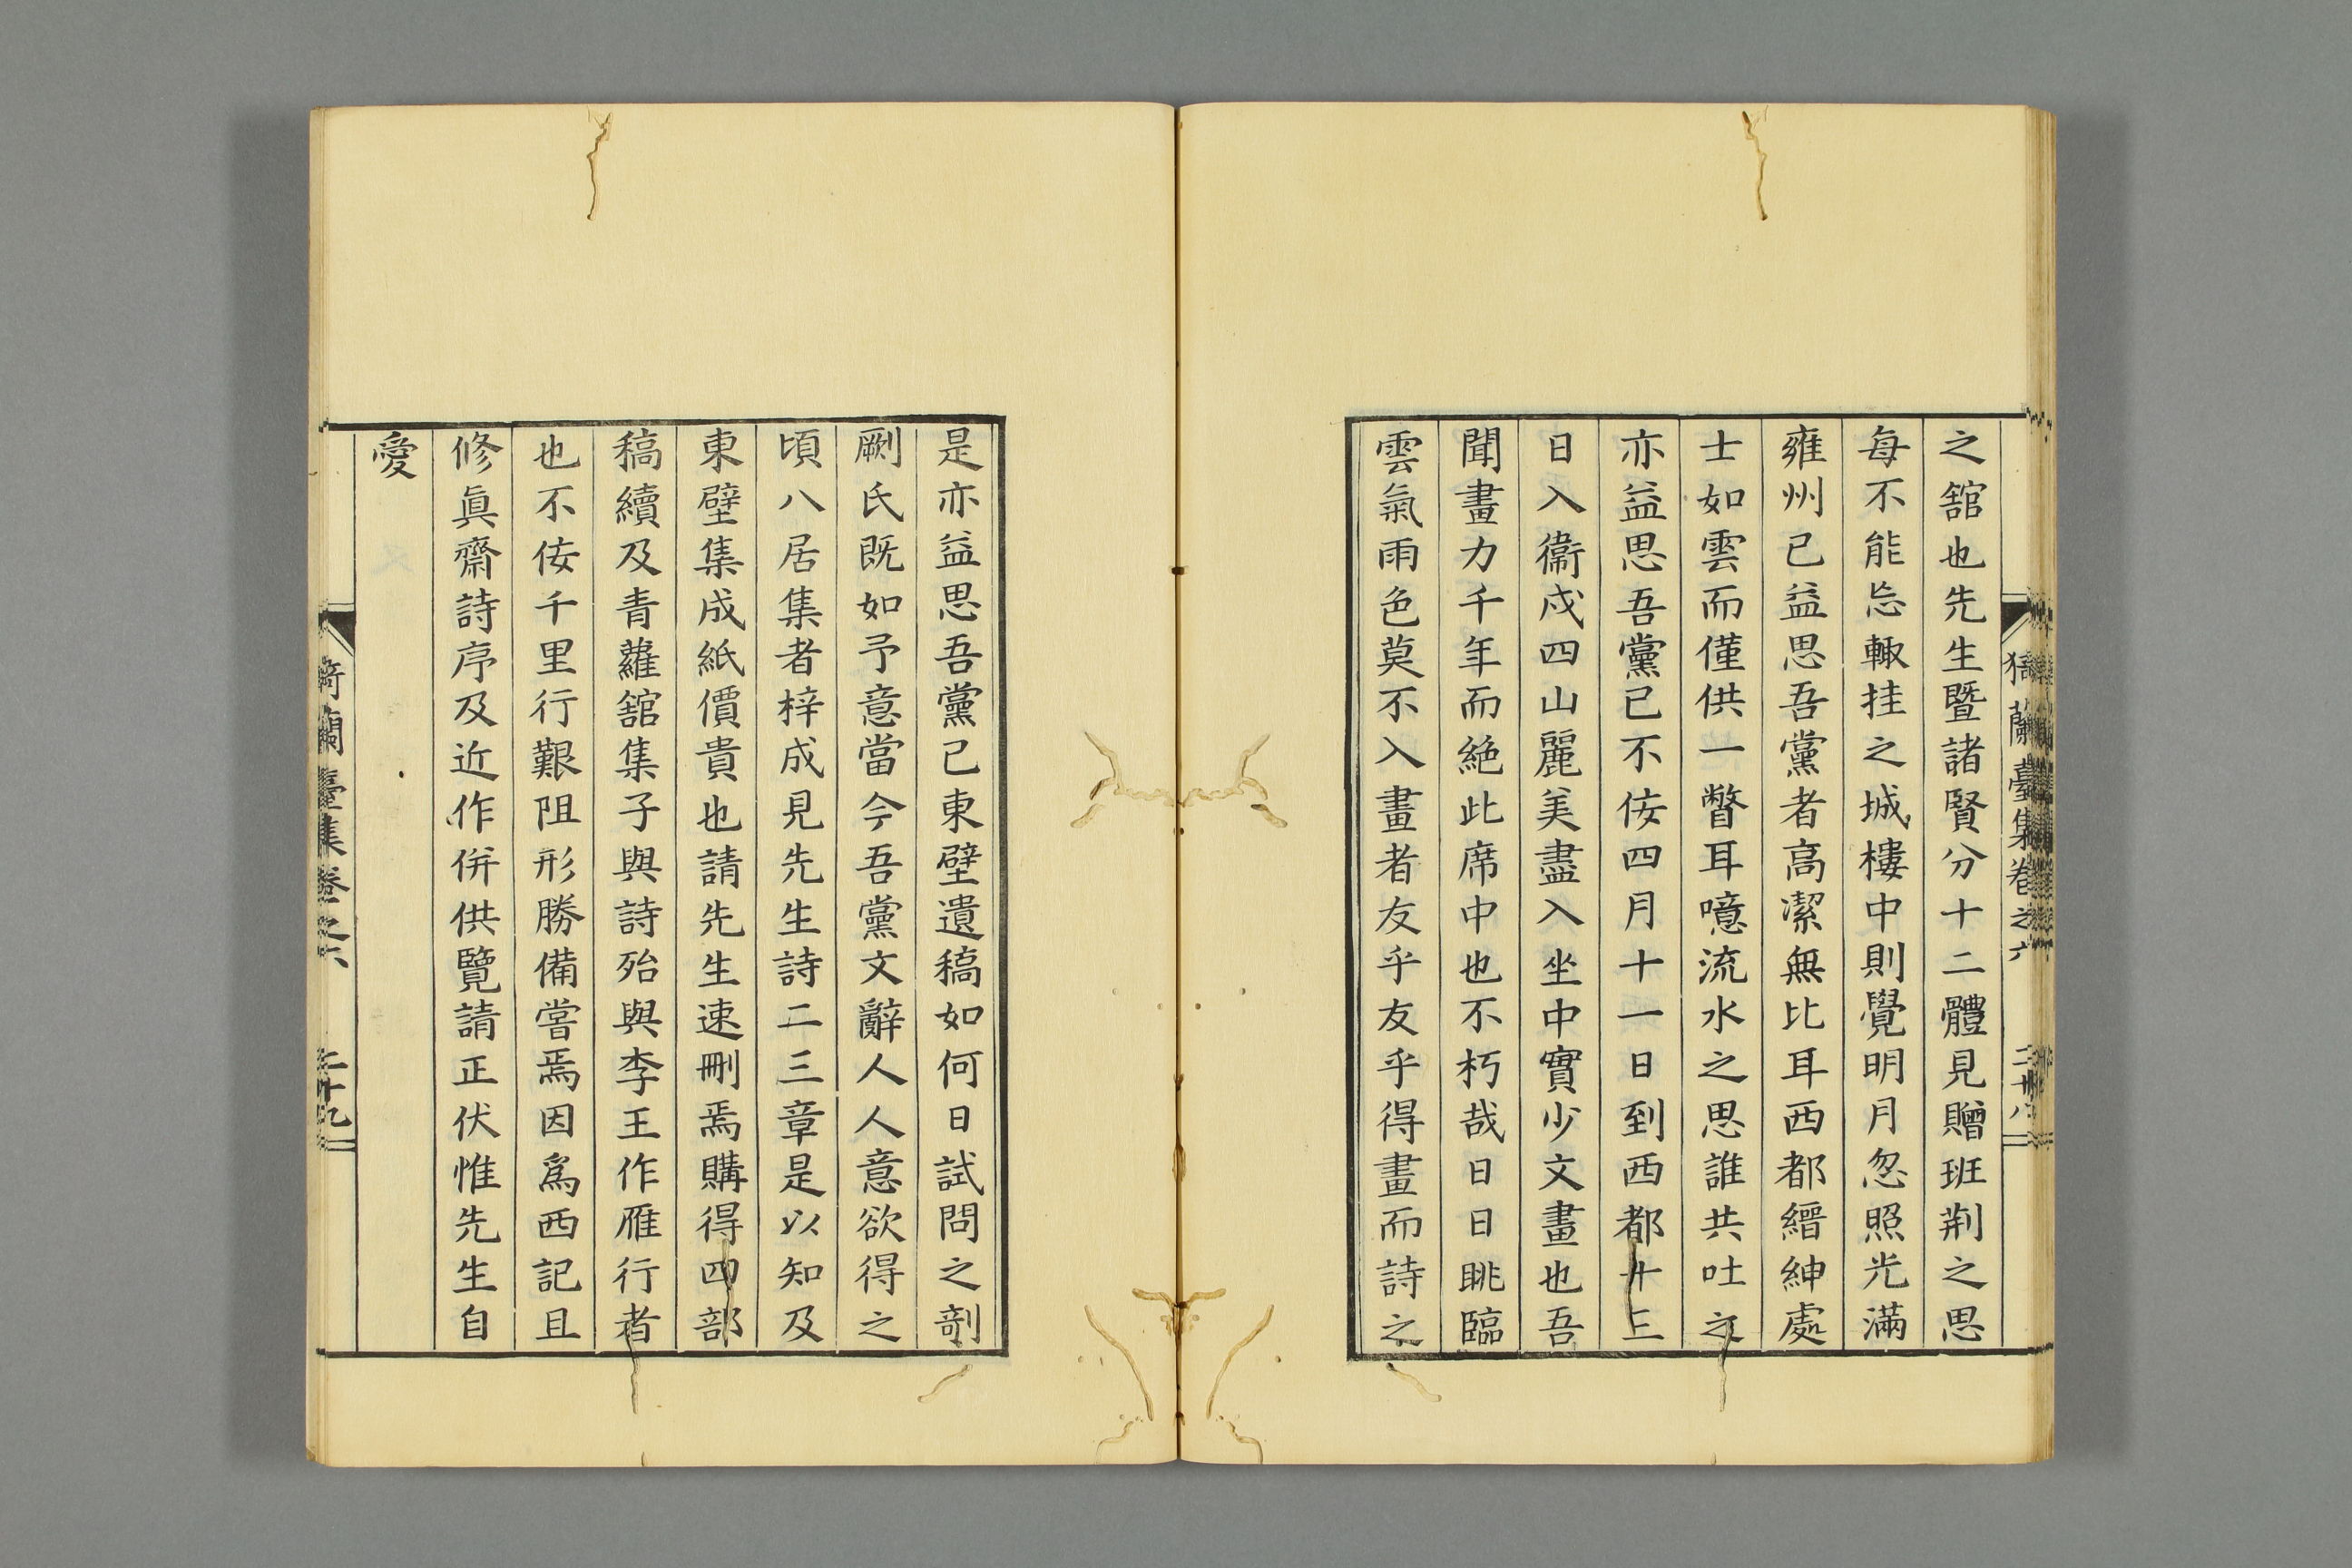 之舘也先生曁諸賢分十二體見贈班荆之思
每不能忘輙挂之城樓中則覺明月忽照光滿
雍州已益思吾黨者高潔無比耳西都縉紳處
士如雲而僅供一瞥耳噫流水之思誰共吐之
亦益思吾黨已不佞四月十一日到西都十三
日入衞戍四山麗美盡入坐中實少文畫也吾
聞畫力千年而絶此席中也不朽哉日日眺臨
雲氣雨色莫不入畫者友乎友乎得畫而詩之
是亦益思吾黨已東壁遺稿如何日試問之剞
劂氏既如予意當今吾黨文辭人人意欲得之
頃八居集者梓成見先生詩二三章是以知及
東壁集成紙價貴也請先生速刪焉購得四部
稿續及青蘿舘集子與詩殆與李王作雁行者
也不佞千里行艱阻形勝備嘗焉因爲西記且
修眞齋詩序及近作併供覽請正伏惟先生自
愛
蘭臺集卷之六